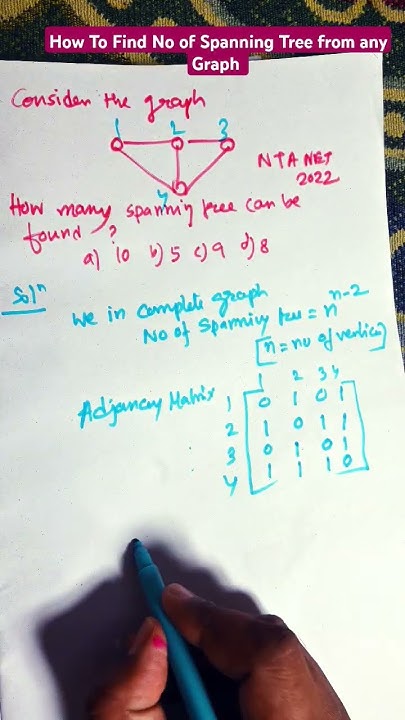 How To Find No of Spanning Tree from any
Graph
Consider the graph
1 2 3
4
NTA NET
2022
How many spanning tree can be
found ?
a) 10 b) 5 c) 9 d) 8
Solⁿ
We in complete graph
No of spanning tree = n^n-2
[n = no of vertices]
1 2 3 4
Adjancacy Matrix 1 0 1 0 1
2 1 0 1 1
3 0 1 0 1
4 1 1 1 0